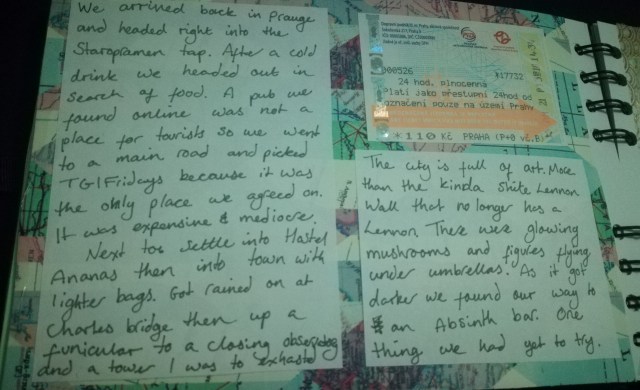 We arrived back in Prauge
and headed right into the
Staropramen tap. After a cold
drink we headed out in
search of food. A pub we
found online was not a
place for tourists so we went
to a main road and picked
TGIFridays because it was
the only place we agreed on.
It was expensive & mediocre.
Next too settle into Hostel
Ananas then into town with
lighter bags. Got rained on at
Charles bridge then up a
funicular to a closing
and a tower I was to
000526 K17732
24 hod. plnocenná
Platí jako přestupní 24hod od
označení pouze na území Prahy
*110 Kč PRAHA (P+0
The city is full of art. More
than the kinda shite Lennon
Wall that no longer has a
Lennon. There were glowing
mushrooms and figures flying
under umbrellas. As it got
darker we found our way to
an Absinth bar. One
thing we had yet to try.